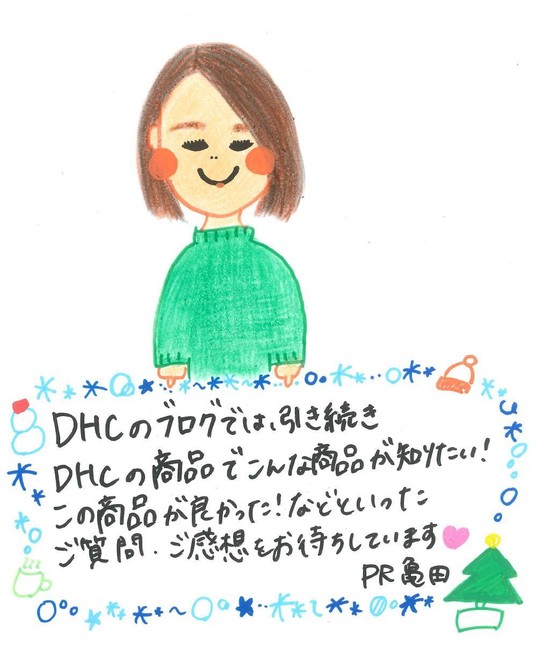 DHCのブログでは、引き続き
DHCの商品でこんな商品が知りたい!
この商品が良かった!などといった
ご質問・ご感想をお待ちしています
PR亀田